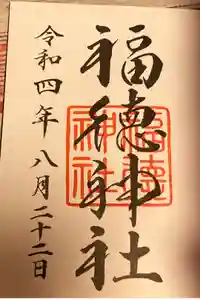 福徳神社
令和四年八月二十二日
福徳
神社